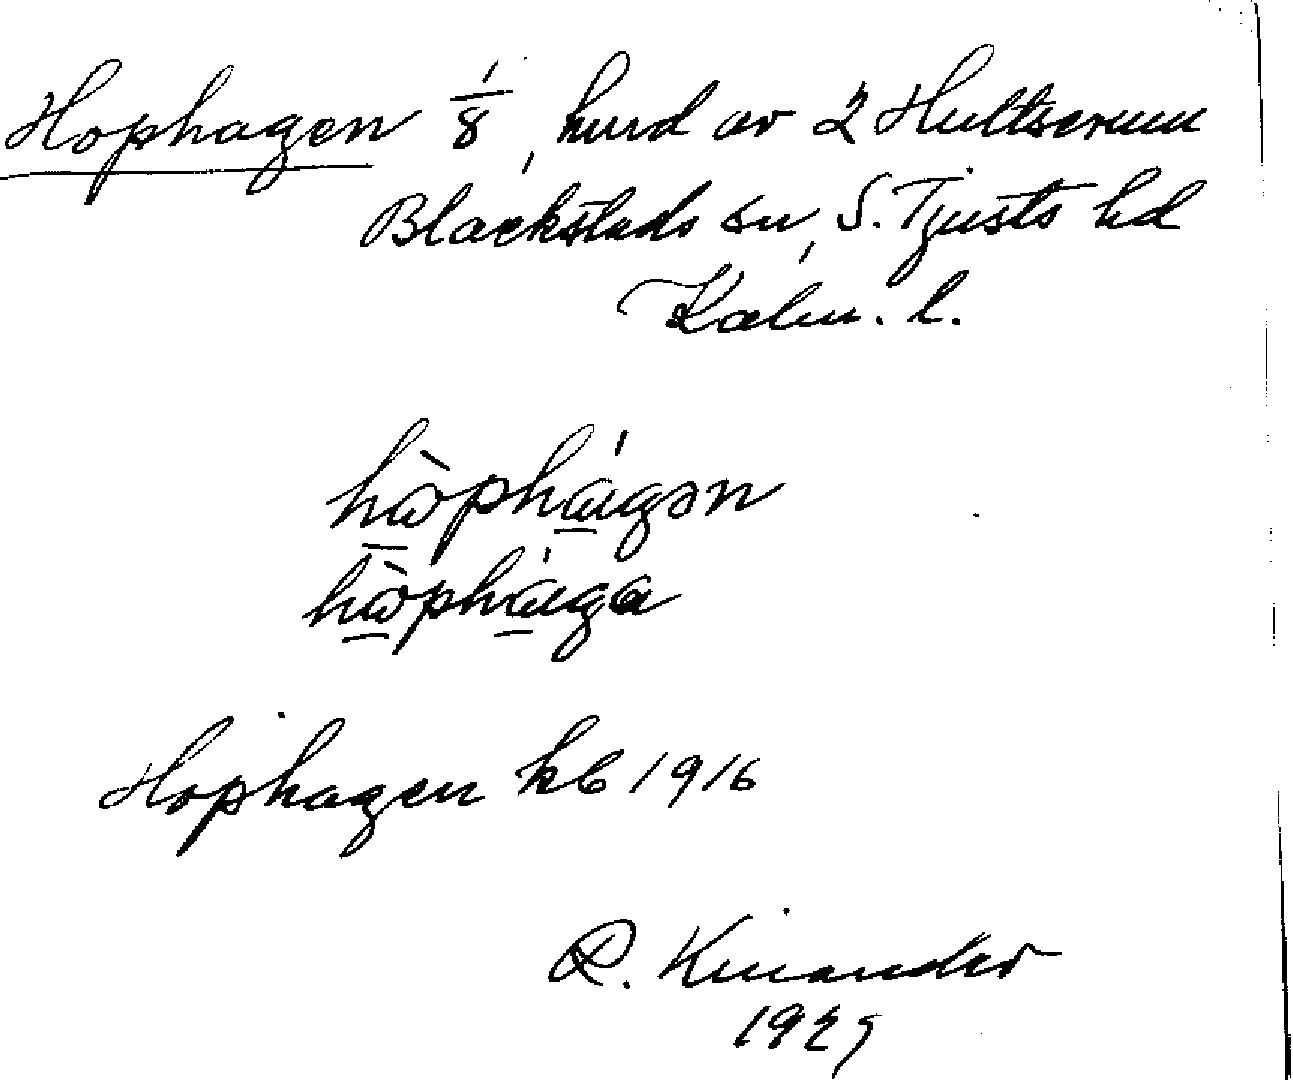 Hophagen 1/8, hmd av 2 Hultserum
Blackstads sn, S. Tjusts hd
Kalm. l.
hòphágən
hòphága
Hophagen kb 1916
R. Kinander
1929